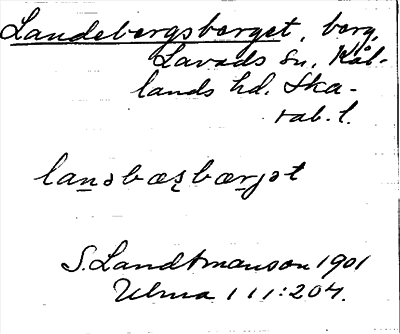 Landebergsberget, berg,
Lavads sn, Kål-
lands hd. Ska-
rab. l.
lanəbæʂbærjət
S. Landtmanson 1901
Ulma 111:204.